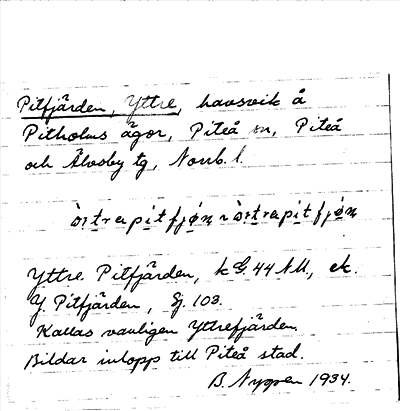 Pitfjärden, Yttre, havsvik å
Pitholms ägor, Piteå sn, Piteå
och Älvsby tg, Norrb. l.
Yttre Pitfjärden, 44 NU, ek.
Y. Pitfjärden, Gj. 103.
Kallas vanligen Yttrefjärden.
Bildar inlopp till Piteå stad.
B. Nygren 1934.